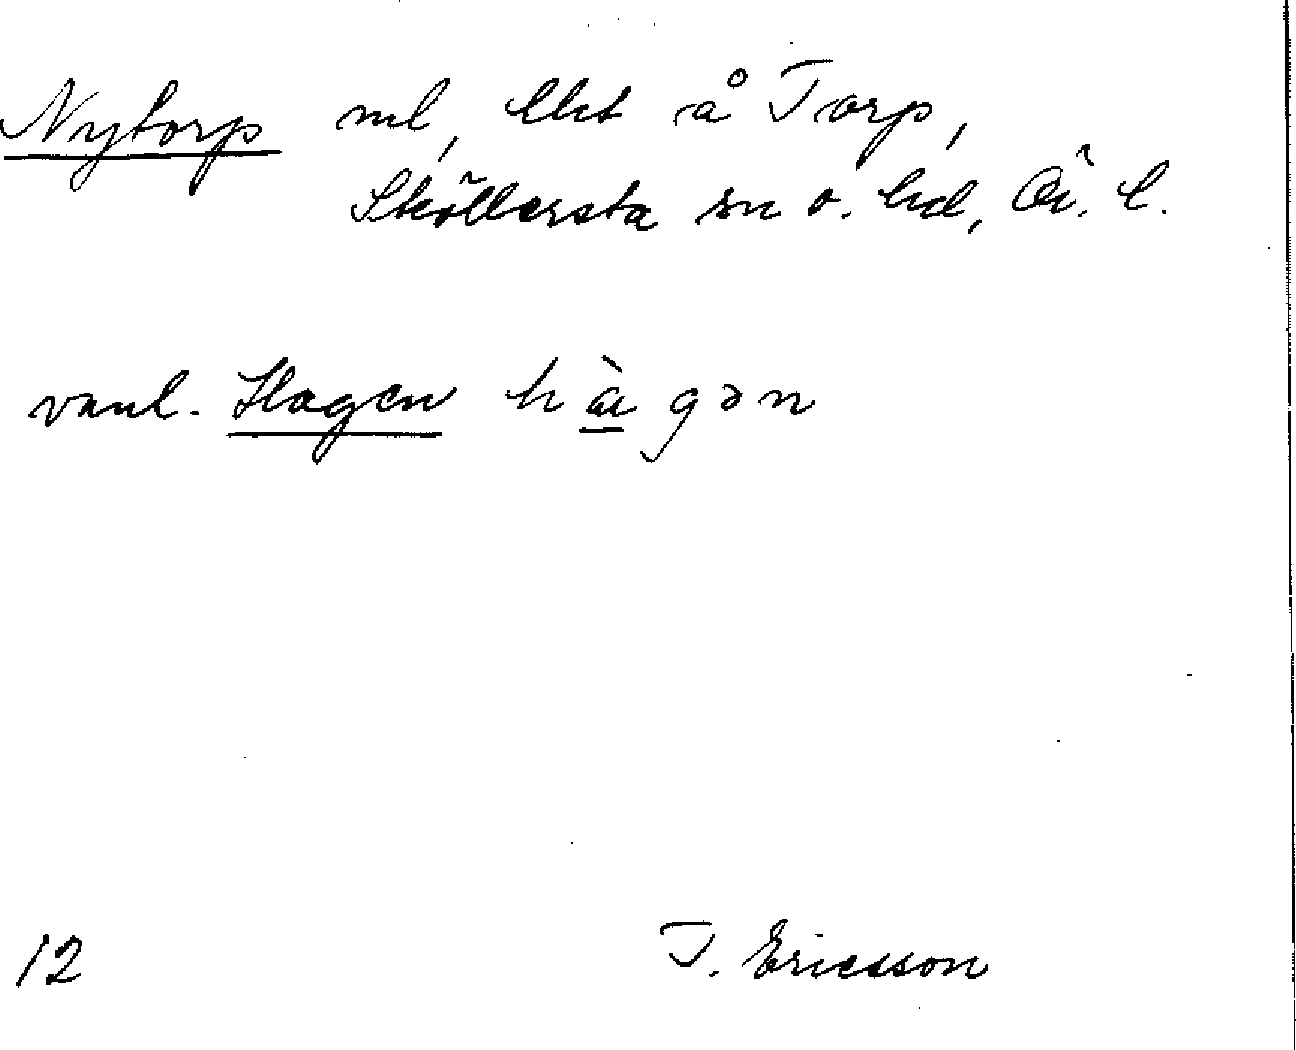 Nytorp ml, lht å Torp,
Sköllersta sn o. hd, Ör. l.
vanl. Hagen hàgən
12
T. Ericsson